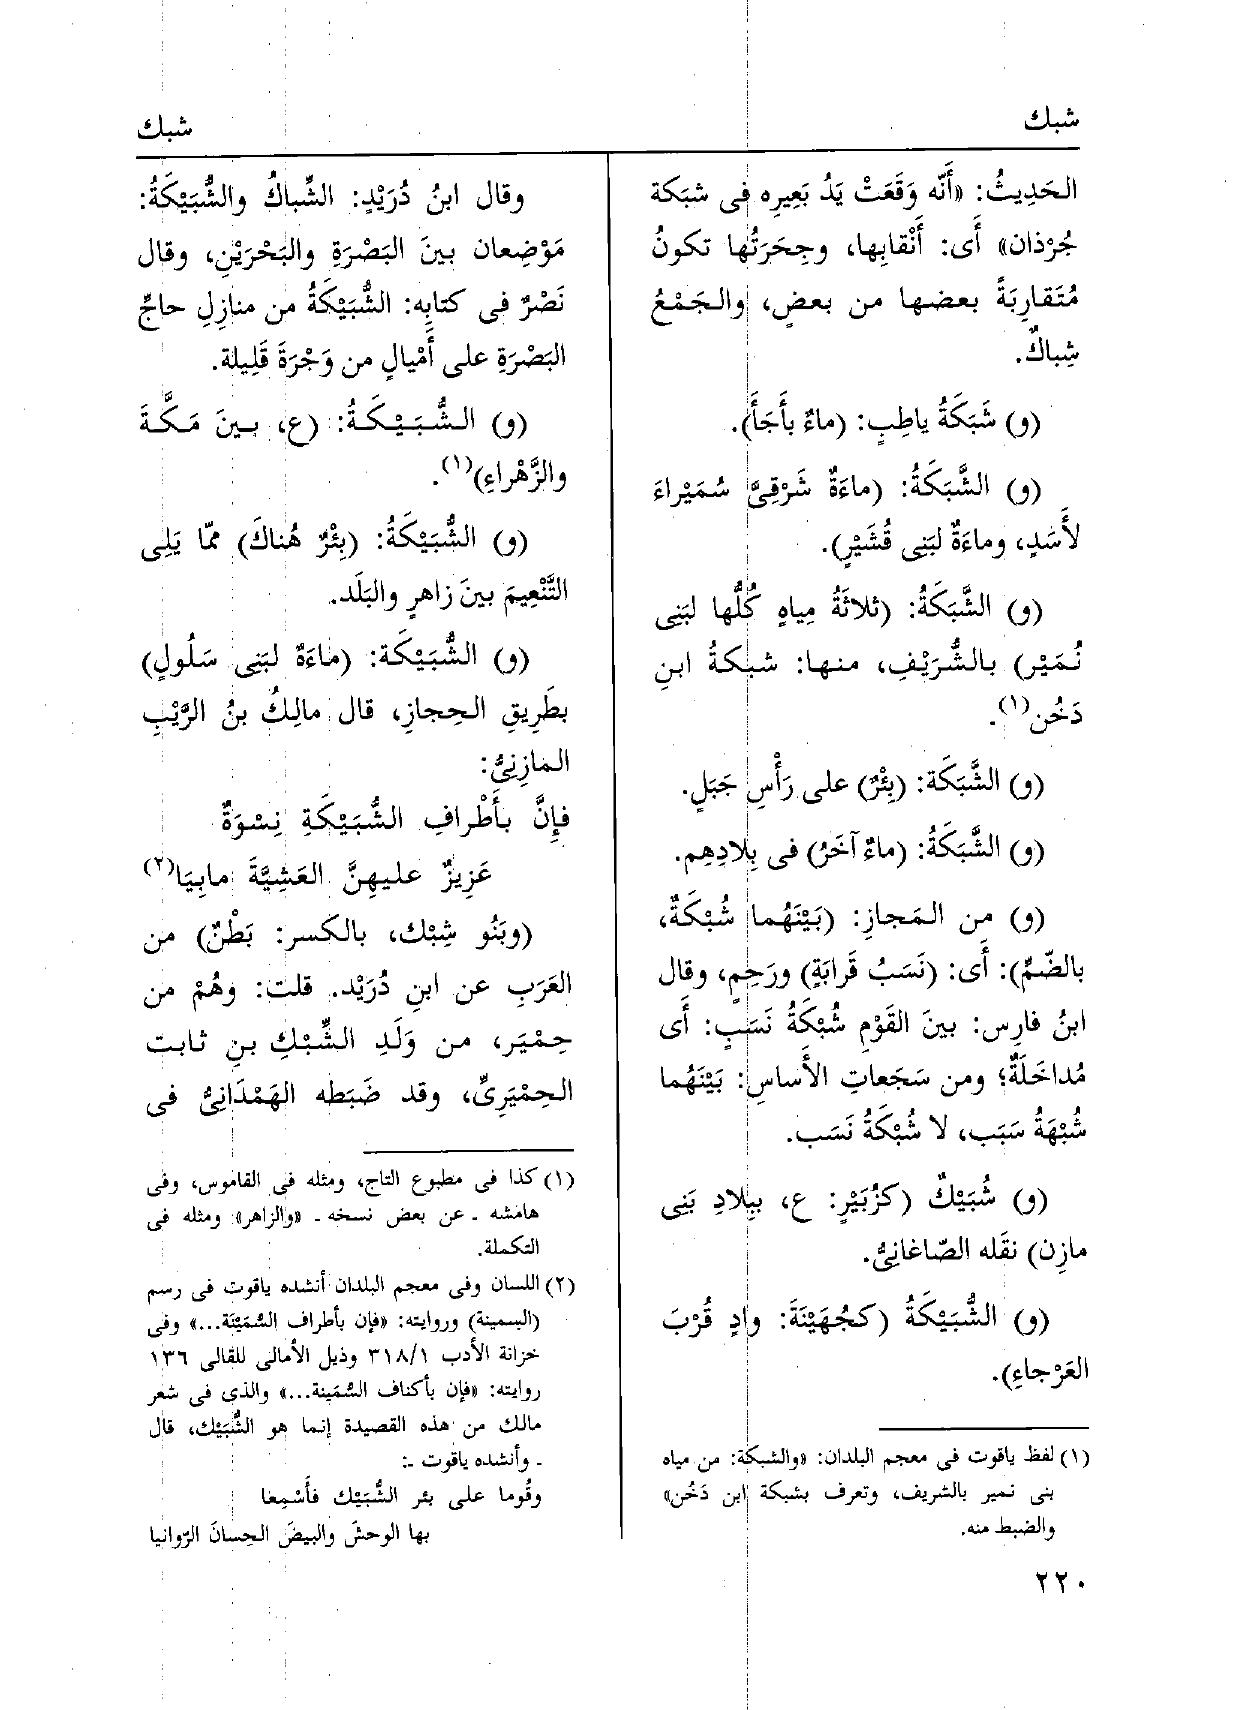 شبك
شبك
الحَدِيثُ: «أَنّه وَقَعَتْ يَدُ بَعِيرِه فى شَبَكة
جُرْذان» أَى: أَنْقابِها، وجِحَرَتُها تكونُ
مُتَقارِبَةً بعضها من بعض، والجَمْعُ
شِباكٌ.
(و) شَبَكَةُ ياطِبٍ: (ماءٌ بأَجَأَ).
(و) الشَّبَكَةُ: (ماءَةٌ شَرْقِىَّ سُمَيْراءَ
لأَسَدٍ، وماءَةٌ لبَنِى قُشَيْرٍ).
(و) الشَّبَكَةُ: (ثلاثَةُ مِياهٍ كُلُّها لبَنِى
نُمَيْر) بالشُّرَيْفِ، منها: شبكةُ ابنِ
دَخُن(١).
(و) الشَّبَكَة: (بِئْرٌ) على رَأْسِ جَبَلٍ.
(و) الشَّبَكَةُ: (ماءٌ آخَرُ) فى بِلادِهم.
(و) من المَجاز: (بَيْنَهُما شُبْكَةٌ،
بالضّمِّ): أَى: (نَسَبُ قَرابَةٍ) ورَحِمٍ، وقال
ابنُ فارِس: بينَ القَوْمِ شُبْكَةُ نَسَبٍ: أَى
مُداخَلَةٌ؛ ومن سَجَعاتِ الأَساسِ: بَيْنَهُما
شُبْهَةُ سَبَب، لا شُبْكَةُ نَسَب.
(و) شُبَيْكٌ (كزُبَيْرٍ: ع، ببِلادِ بَنِى
مازِن) نقَله الصّاغانِىُّ.
(و) الشُّبَيْكَةُ (كجُهَيْنَةَ: وادٍ قُرْبَ
العَرْجاءِ).
(١) لفظ ياقوت فى معجم البلدان: «والشبكة: من مياه
بنى نمير بالشريف، وتعرف بشبكة ابن دَخُن»
والضبط منه.
وقال ابنُ دُرَيْدٍ: الشِّباكُ والشُّبَيْكَةُ:
مَوْضِعان بينَ البَصْرَةِ والبَحْرَيْنِ، وقال
نَصْرٌ فى كتابِه: الشُّبَيْكَةُ من منازِلِ حاجِّ
البَصْرَةِ على أَمْيالٍ من وَجْرَةَ قَلِيلة.
(و) الشُّبَيْكَةُ: (ع، بينَ مَكَّةَ
والزَّهْراءِ)(١).
(و) الشُّبَيْكَةُ: (بِئْرٌ هُناكَ) ممّا يَلِى
التَّنْعِيمَ بينَ زاهرٍ والبَلَد.
(و) الشُّبَيْكَة: (ماءَةٌ لبَنِى سَلُولٍ)
بطَرِيقِ الحِجازِ، قال مالِكُ بنُ الرَّيْبِ
المازِنِىُّ:
فإِنَّ بأَطْرافِ الشُّبَيْكَةِ نِسْوَةٌ
عَزِيزٌ عليهِنَّ العَشِيَّةَ مابِيَا(٢)
(وبَنُو شِبْك، بالكسر: بَطْنٌ) من
العَرَبِ عن ابنِ دُرَيْد. قلت: وهُمْ من
حِمْيَر، من وَلَدِ الشِّبْكِ بنِ ثابت
الحِمْيَرِىِّ، وقد ضَبَطه الهَمْدَانِىُّ فى
(١) كذا فى مطبوع التاج، ومثله فى القاموس، وفى
هامشه - عن بعض نسخه - «والزاهر» ومثله فى
التكملة.
(٢) اللسان وفى معجم البلدان أنشده ياقوت فى رسم
(السمينة) وروايته: «فإن بأطراف السُّمَيْنَة...» وفى
خزانة الأدب ٣١٨/١ وذيل الأمالى للقالى ١٣٦
روايته: «فإن بأكناف السُّمَينة...» والذى فى شعر
مالك من هذه القصيدة إنما هو الشُّبَيْك، قال
- وأنشده ياقوت -:
وقُوما على بئر الشُّبَيْك فأَسْمِعا
بها الوحشَ والبيضَ الحِسانَ الرّوانيا
٢٢٠